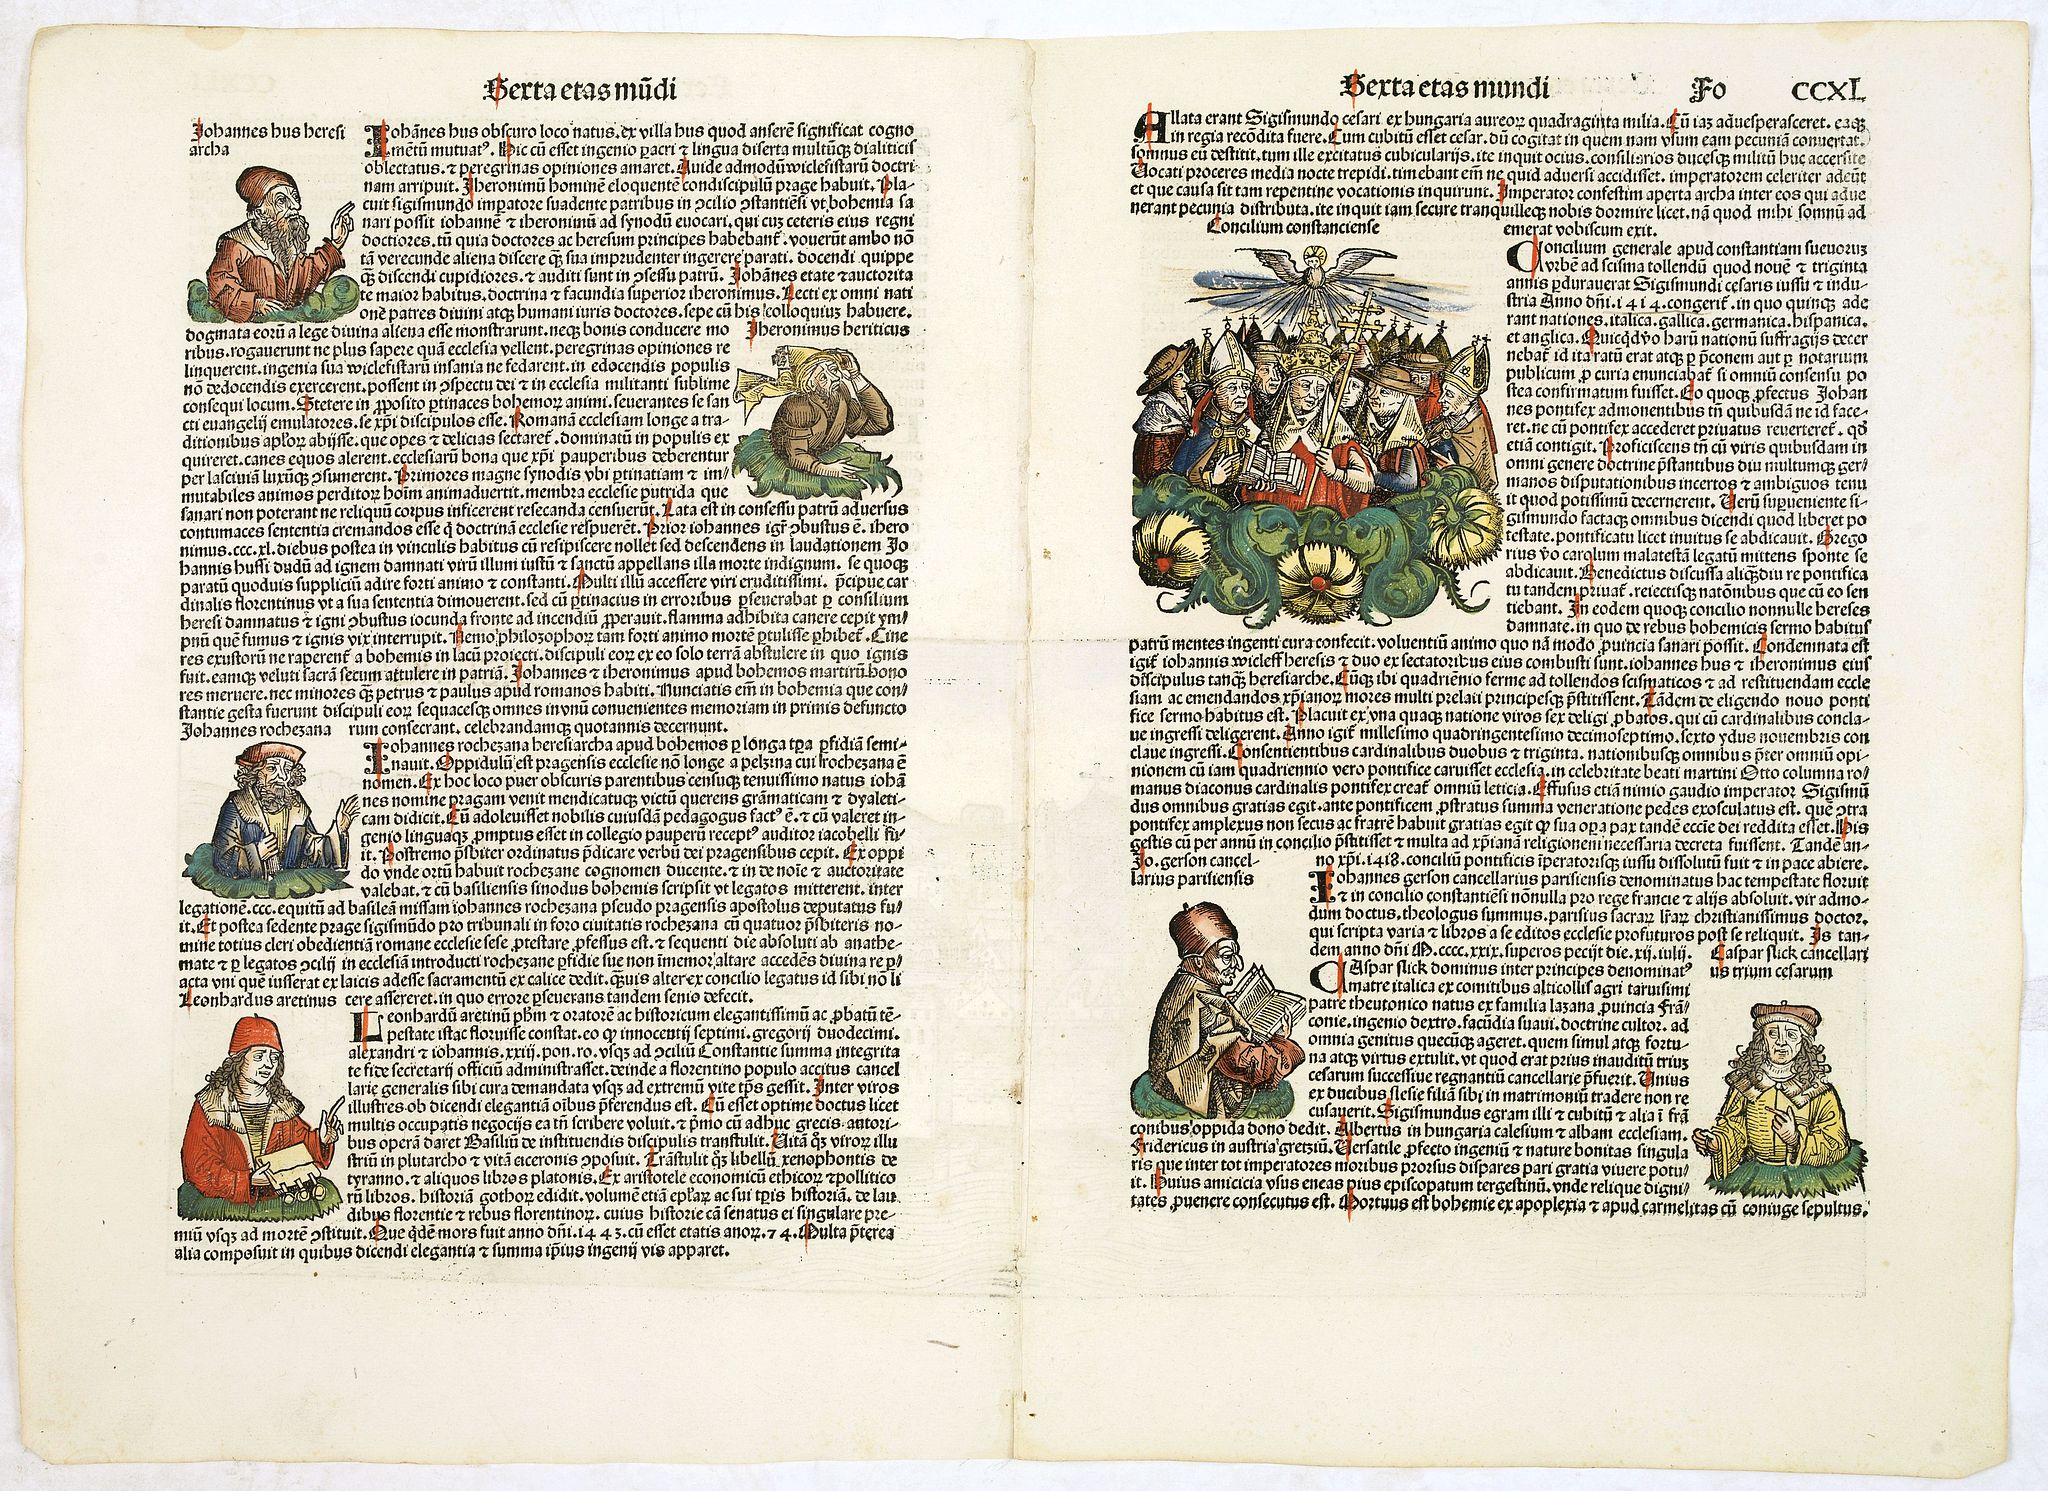 Sexta etas mūdi
Johannes hus heresi
archa
Iohānes hus obscuro loco natus. ex villa hus quod anserē significat cogno
mētū mutuatꝰ. Hic cū esset ingenio ꝑacri ⁊ lingua diserta multūqꝫ dialiticis
oblectatus. ⁊ peregrinas opiniones amaret. Auide admodū wiclefistarū doctri
nam arripuit. Iheronimū hominē eloquentē condiscipulū prage habuit. Pla-
cuit sigismundo imꝑatore suadente patribus in ꝯcilio ꝯstantiēsi vt bohemia sa
nari possit iohannē ⁊ iheronimū ad synodū euocari. qui cuꝫ ceteris eius regni
doctiores. tū quia doctores ac heresum principes habebant̄. vouerūt ambo nō
tā verecunde aliena discere qꝫ sua imprudenter ingerere parati. docendi quippe
qꝫ discendi cupidiores. ⁊ auditi sunt in ꝯsessu patrū. Johānes etate ⁊ auctorita
te maior habitus. doctrina ⁊ facundia superior iheronimus. Lecti ex omni nati
onē patres diuini atqꝫ humani iuris doctores. sepe cū his colloquiuꝫ habuere.
dogmata eorū a lege diuina aliena esse monstrarunt. neqꝫ bonis conducere mo
Iheronimus heriticus
ribus. rogauerunt ne plus sapere quā ecclesia vellent. peregrinas opiniones re
linquerent. ingenia sua wiclefistarū insania ne fedarent. in edocendis populis
nō dedocendis exercerent. possent in ꝯspectu dei ⁊ in ecclesia militanti sublime
consequi locum. Stetere in ꝓposito ꝑtinaces bohemoꝝ animi. seuerantes se san
cti euangelij emulatores. se xp̄i discipulos esse. Romanā ecclesiam longe a tra-
ditionibus ap̄loꝝ abijsse. que opes ⁊ delicias sectaret̄. dominatū in populis ex
quireret. canes equos alerent. ecclesiarū bona que xp̄i pauperibus deberentur
per lasciuiā luxūqꝫ ꝯsumerent. Primores magne synodis vbi ꝑtinatiam ⁊ im-
mutabiles animos perditoꝝ hoīm animaduertit. membra ecclesie putrida que
sanari non poterant ne reliquū corpus inficerent resecanda censuerūt. Lata est in consessu patrū aduersus
contumaces sententia cremandos esse q̄ doctrinā ecclesie respuerēt. Prior iohannes igr̄ ꝯbustus ē. ihero
nimus. ccc. xl. diebus postea in vinculis habitus cū resipiscere nollet sed descendens in laudationem Jo
hannis hussi dudū ad ignem damnati virū illum iustū ⁊ sanctū appellans illa morte indignum. se quoqꝫ
paratū quoduis suppliciū adire forti animo ⁊ constanti. Multi illū accessere viri eruditissimi. p̄cipue car
dinalis florentinus vt a sua sententia dimouerent. sed cū ꝑtinacius in erroribus ꝑseuerabat ꝑ consilium
heresi damnatus ⁊ igni ꝯbustus iocunda fronte ad incendiū ꝓperauit. flamma adhibita canere cepit ym-
pnū quē fumus ⁊ ignis vix interrupit. Nemo philozophoꝝ tam forti animo mortē ꝑtulisse ꝑhibet̄. Cine
res exustorū ne raperent̄ a bohemis in lacū proiecti. discipuli eoꝝ ex eo solo terrā abstulere in quo ignis
fuit. eamqꝫ veluti sacrā secum attulere in patriā. Johannes ⁊ iheronimus apud bohemos martirū hono
res meruere. nec minores qꝫ petrus ⁊ paulus apud romanos habiti. Nunciatis em̄ in bohemia que con-
stantie gesta fuerunt discipuli eoꝝ sequacesqꝫ omnes in vnū conuenientes memoriam in primis defuncto
Johannes rochezana
rum consecrant. celebrandamqꝫ quotannis decernunt.
Iohannes rochezana heresiarcha apud bohemos ꝑ longa tꝑa ꝑfidiā semi-
nauit. Oppidulū est pragensis ecclesie nō longe a pelzina cui rochezana ē
nomen. Ex hoc loco puer obscuris parentibus censuqꝫ tenuissimo natus iohā
nes nomine pragam venit mendicatuqꝫ victū querens grāmaticam ⁊ dyaleti-
cam didicit. Cū adoleuisset nobilis cuiusdā pedagogus factꝰ ē. ⁊ cū valeret in-
genio linguaqꝫ ꝓmptus esset in collegio pauperū receptꝰ auditor iacobelli fu-
it. Postremo p̄sbiter ordinatus p̄dicare verbū dei pragensibus cepit. Ex oppi
do vnde ortū habuit rochezane cognomen ducente. ⁊ in de noīe ⁊ auctoritate
valebat. ⁊ cū basiliensis sinodus bohemis scripsit vt legatos mitterent. inter
legationē. ccc. equitū ad basileā missam iohannes rochezana pseudo pragensis apostolus deputatus fu-
it. Et postea sedente prage sigismūdo pro tribunali in foro ciuitatis rochezana cū quatuor p̄sbiteris no-
mine totius cleri obedientiā romane ecclesie sese ꝓtestare ꝓfessus est. ⁊ sequenti die absoluti ab anathe-
mate ⁊ ꝑ legatos ꝯcilij in ecclesiā introducti rochezane ꝑfidie sue non īmemor altare accedēs diuina re ꝑ-
acta vni que iusserat ex laicis adesse sacramentū ex calice dedit. qꝫuis alter ex concilio legatus id sibi nō li
Leonhardus aretinus
cere assereret. in quo errore ꝑseuerans tandem senio defecit.
Leonhardū aretinū ph̄m ⁊ oratorē ac historicum elegantissimū ac ꝓbatū tē-
pestate istac floruisse constat. eo ꝙ innocentij septimi. gregorij duodecimi.
alexandri ⁊ iohannis. xxiij. pon. ro. vsqꝫ ad ꝯciliū Constantie summa integrita
te fide secretarij officiū administrasset. deinde a florentino populo accitus cancel
larie generalis sibi cura demandata vsqꝫ ad extremū vite tp̄s gessit. Inter viros
illustres ob dicendi elegantiā oībus p̄ferendus est. Cū esset optime doctus licet
multis occupatis negocijs ea tn̄ scribere voluit. ⁊ p̄mo cū adhuc grecis autori-
bus operā daret Basiliū de instituendis discipulis transtulit. Vitā qꝫ viroꝝ illu
striū in plutarcho ⁊ vitā ciceronis ꝯposuit. Trāstulit qꝫ libellū xenophontis de
tyranno. ⁊ aliquos libros platonis. Ex aristotele economicū ethicoꝝ ⁊ pollitico
rū libros. historiā gothoꝝ edidit. volumē etiā ep̄laꝝ ac sui tp̄is historiā. de lau
dibus florentie ⁊ rebus florentinoꝝ. cuius historie cā senatus ei singulare pre-
miū vsqꝫ ad mortē ꝯstituit. Que qdē mors fuit anno dn̄i. 1443. cū esset etatis anoꝝ. 74. Multa p̄terea
alia composuit in quibus dicendi elegantia ⁊ summa ip̄ius ingenij vis apparet.
Sexta etas mundi Fo CCXL
Allata erant Sigismundo cesari ex hungaria aureoꝝ quadraginta milia. Cū iaꝫ aduesperasceret. eaqꝫ
in regia recōdita fuere. Cum cubitū esset cesar. dū cogitat in quem nam vsum eam pecuniā conuertat.
somnus eū destitit. tum ille excitatus cubicularijs. ite inquit ocius. consiliarios ducesqꝫ militū huc accersite
Vocati proceres media nocte trepidi. timebant em̄ ne quid aduersi accidisset. imperatorem celeriter adeūt
et que causa sit tam repentine vocationis inquirunt. Imperator confestim aperta archa inter eos qui adue
nerant pecunia distributa. ite inquit iam secure tranquilleqꝫ nobis dormire licet. nā quod mihi somnū ad
Concilium constanciense
emerat vobiscum exit.
Concilium generale apud constantiam sueuoruꝫ
vrbē ad scisma tollendū quod nouē ⁊ triginta
annis ꝑdurauerat Sigismundi cesaris iussu ⁊ indu-
stria Anno dn̄i. 1414. congerit̄. in quo quinqꝫ ade
rant nationes. italica. gallica. germanica. hispanica.
et anglica. Quicqd v̄o harū nationū suffragijs decer
nebat̄ id ita ratū erat atqꝫ ꝑ p̄conem aut ꝑ notarium
publicum ꝓ curia enunciabat̄ si omniū consensu po
stea confirmatum fuisset. Eo quoqꝫ ꝓfectus Johan
nes pontifex admonentibus tn̄ quibusdā ne id face-
ret. ne cū pontifex accederet priuatus reuerteret̄. qd̄
etiā contigit. Proficiscens tn̄ cū viris quibusdam in
omni genere doctrine p̄stantibus diu multumqꝫ ger-
manos disputationibus incertos ⁊ ambiguos tenu
it quod potissimū decernerent. Verū superueniente si-
gismundo factaqꝫ omnibus dicendi quod liberet po
testate. pontificatu licet inuitus se abdicauit. Grego
rius v̄o carolum malatestā legatū mittens sponte se
abdicauit. Benedictus discussa aliqꝫdiu re pontifica
tu tandem priuat̄. reiectisqꝫ natōnibus que cū eo sen
tiebant. In eodem quoqꝫ concilio nonnulle hereses
damnate. in quo de rebus bohemicis sermo habitus
patrū mentes ingenti cura confecit. voluentiū animo quo nā modo ꝓuincia sanari possit. Condemnata est
igit̄ iohannis wicleff heresis ⁊ duo ex sectatoribus eius combusti sunt. iohannes hus ⁊ iheronimus eius
discipulus tanqꝫ heresiarche. Cūqꝫ ibi quadriēnio ferme ad tollendos scismaticos ⁊ ad restituendam eccle
siam ac emendandos xp̄ianoꝝ mores multi prelati principesqꝫ p̄stitissent. Tandem de eligendo nouo ponti
fice sermo habitus est. Placuit ex vna quaqꝫ natione viros sex deligi ꝓbatos. qui cū cardinalibus concla-
ue ingressi deligerent. Anno igit̄ millesimo quadringentesimo decimoseptimo. sexto ydus nouembris con
claue ingressi. Consentientibus cardinalibus duobus ⁊ triginta. nationibusqꝫ omnibus p̄ter omniū opi-
nionem cū iam quadriennio vero pontifice caruisset ecclesia. in celebritate beati martini Otto columna ro-
manus diaconus cardinalis pontifex creat̄ omniū leticia. Effusus etiā nimio gaudio imperator Sigismū
dus omnibus gratias egit. ante pontificem ꝓstratus summa veneratione pedes exosculatus est. quē ꝯtra
pontifex amplexus non secus ac fratrē habuit gratias egit ꝙ sua oꝑa pax tandē eccīe dei reddita esset. His
gestis cū per annū in concilio p̄stitisset ⁊ multa ad xp̄ianā religionem necessaria decreta fuissent. Tandē an-
no xp̄i. 1418. conciliū pontificis īperatorisqꝫ iussu dissolutū fuit ⁊ in pace abiere.
Jo. gerson cancel-
larius parisiensis
Iohannes gerson cancellarius parisiensis denominatus hac tempestate floruit
⁊ in concilio constantiēsi nōnulla pro rege francie ⁊ alijs absoluit. vir admo-
dum doctus. theologus summus. parisius sacraꝝ lr̄aꝝ christianissimus doctor.
qui scripta varia ⁊ libros a se editos ecclesie profuturos post se reliquit. Is tan-
dem anno dn̄i M. cccc. xxix. superos petijt die. xij. iulij.
Caspar slick cancellari
us trium cesarum
Caspar slick dominus inter principes denominatꝰ
matre italica ex comitibus alticollis agri taruisini
patre theutonico natus ex familia lazana ꝓuincia Frā-
conie. ingenio dextro. facūdia suaui. doctrine cultor. ad
omnia genitus quecūqꝫ ageret. quem simul atqꝫ fortu-
na atqꝫ virtus extulit. vt quod erat prius inauditū triuꝫ
cesarum successiue regnantiū cancellarie p̄fuerit. Vnius
ex ducibus slesie filiam sibi in matrimoniū tradere non re
cusauerit. Sigismundus egram illi ⁊ cubitū ⁊ alia ī frā
conibus oppida dono dedit. Albertus in hungaria calesium ⁊ albam ecclesiam.
Fridericus in austria gretziū. Versatile ꝓfecto ingeniū ⁊ nature bonitas singula
ris que inter tot imperatores moribus prorsus dispares pari gratia viuere potu-
it. Huius amicicia vsus eneas pius episcopatum tergestinū. vnde relique digni-
tates ꝓuenere consecutus est. Mortuus est bohemie ex apoplexia ⁊ apud carmelitas cū coniuge sepultus.